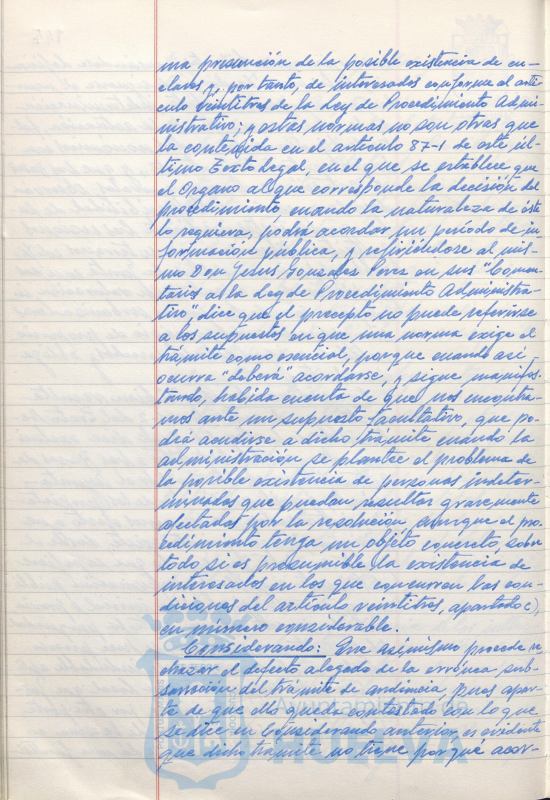 ma presunción de la posible existencia de en-
claves y, por tanto, de interesados conforme al artí-
culo veintitres de la Ley de Procedimiento Admi-
nistrativo; y estas normas no son otras que
la contenida en el artículo 87-1 de este úl-
timo Texto legal, en el que se establece que
el Organo al que corresponde la decisión del
procedimiento, cuando la naturaleza de éste
lo requiera, podrá acordar un período de in-
formación pública, y refiriéndose al mis-
mo Don Jesus Gonzalez Perez en sus "Comen-
tarios a la Ley de Procedimiento Administra-
tivo", dice que el precepto no puede referirse
a los supuestos en que una norma exige el
trámite como esencial, porque cuando así
ocurra "deberá" acordarse, y sigue manifes-
tando, habida cuenta de que nos encontra-
mos ante un supuesto facultativo, que po-
drá acudirse a dicho trámite cuando la
administración se plantee el problema de
la posible existencia de personas indeter-
minadas que puedan resultar gravemente
afectadas por la resolución, aunque el pro-
cedimiento tenga un objeto concreto, sobre
todo si es presumible la existencia de
interesados en los que concurren las con-
diciones del artículo veintitres, apartado c),
en número considerable.
Considerando: Que asimismo procede re-
chazar el defecto alegado de la errónea sub-
sanación del trámite de audiencia, pues apar-
te de que ello queda contestado con lo que
se dice en Considerando anterior, es evidente
que dicho trámite no tiene por qué acor-
Ayuntamiento de
HUELVA